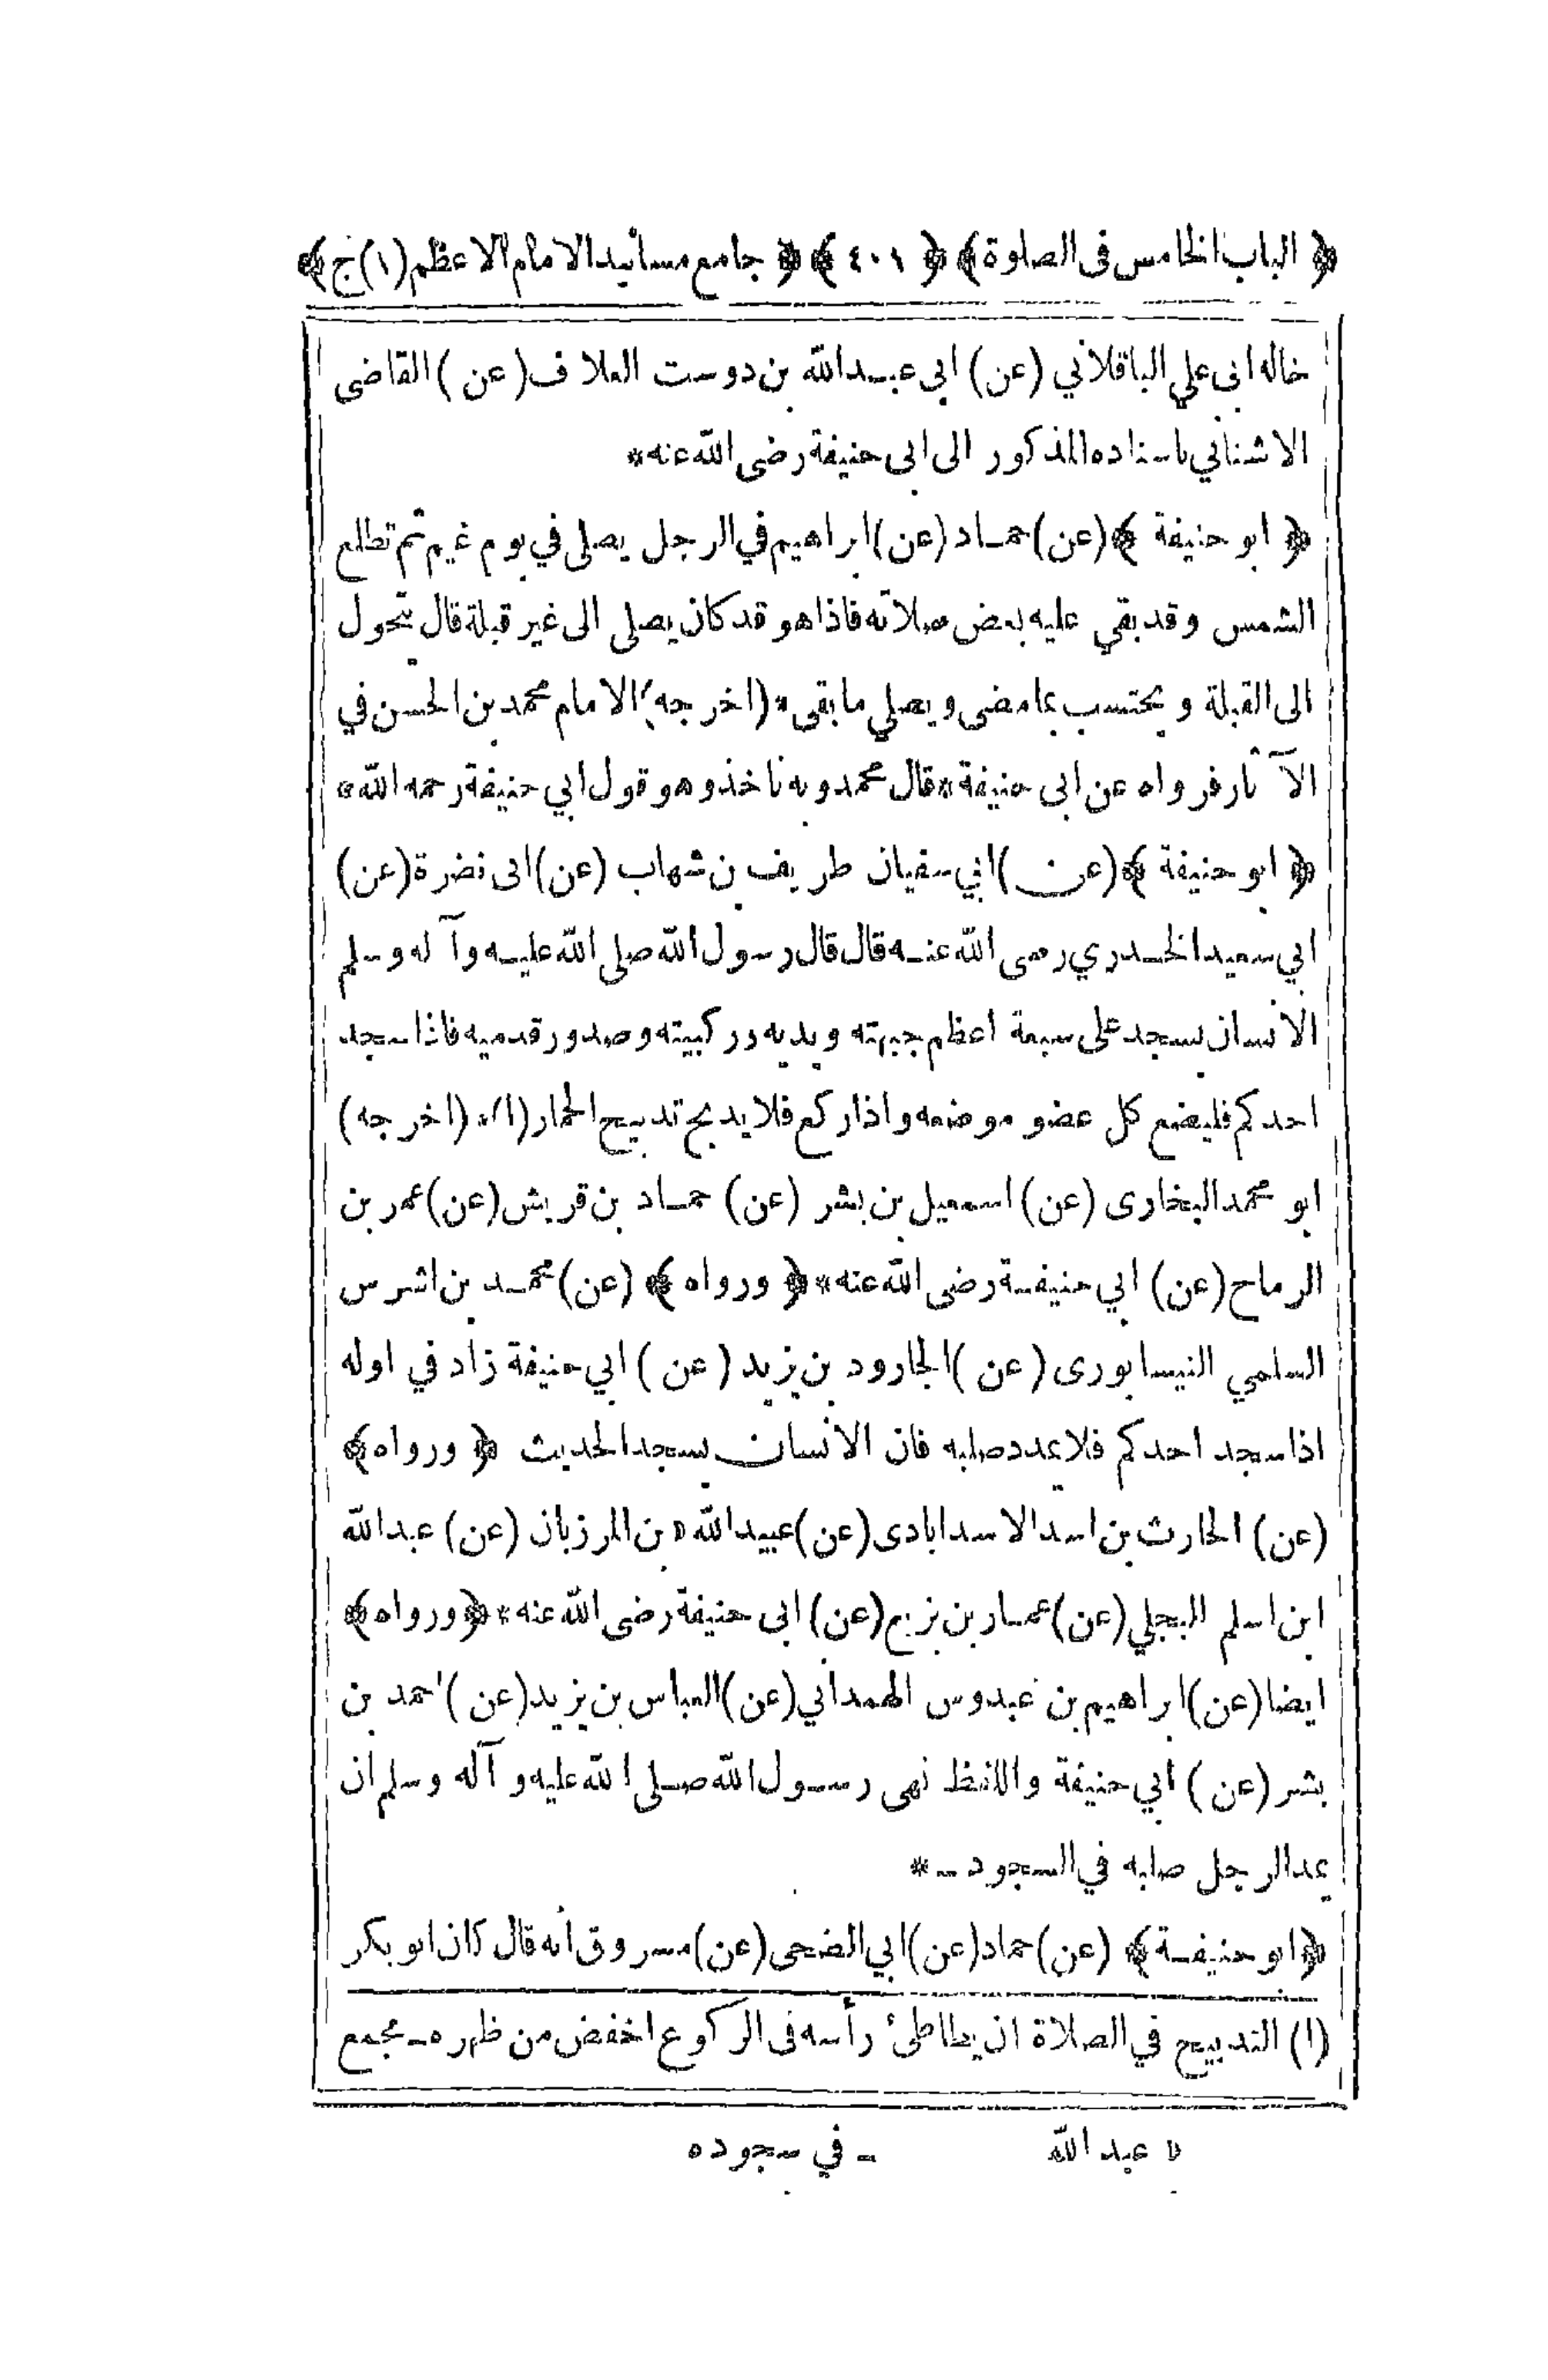 ﴿ الباب الخامس فى الصلوة ﴾ ﴿ ٤٠١ ﴾ ﴿ جامع مسانيد الامام الاعظم (١) ج ﴾
خاله ابى علي الباقلاني (عن) ابي عبد الله بن دوست العلاف (عن) القاضى
الاشناني باسناده المذكور الى ابى حنيفة رضى الله عنه *
﴿ ابو حنيفة ﴾ (عن) حماد (عن) ابراهيم في الرجل يصلى في يوم غيم ثم تطلع
الشمس وقد بقي عليه بعض صلاته فاذا هو قد كان يصلى الى غير قبلة قال يتحول
الى القبلة و يحتسب بما مضى و يصلي ما بقى * (اخرجه) الامام محمد بن الحسن في
الآثار فرواه عن ابى حنيفة * قال محمد وبه ناخذ وهو قول ابي حنيفة رحمه الله *
﴿ ابو حنيفة ﴾ (عن) ابي سفيان طريف بن شهاب (عن) ابى نضرة (عن)
ابي سعيد الخدري رضى الله عنه قال قال رسول الله صلى الله عليه وآله وسلم
الانسان يسجد على سبعة اعظم جبهته و يديه وركبيته وصدور قدميه فاذا سجد
احدكم فليضع كل عضو موضعه واذا ركع فلا يدبح تدبيح الحمار (١) * (اخرجه)
ابو محمد البخارى (عن) اسمعيل بن بشر (عن) حماد بن قريش (عن) عمر بن
الرماح (عن) ابي حنيفة رضى الله عنه * ﴿ ورواه ﴾ (عن) محمد بن اشرس
السلمي النيسابورى (عن) الجارود بن يزيد (عن) ابي حنيفة زاد في اوله
اذا سجد احدكم فلا يمدد صلبه فان الانسان يسجد الحديث ﴿ ورواه ﴾
(عن) الحارث بن اسد الاسدابادى (عن) عبيد الله ۵ بن المرزبان (عن) عبد الله
ابن اسلم البجلي (عن) عمار بن بزيع (عن) ابى حنيفة رضى الله عنه * ﴿ ورواه ﴾
ايضا (عن) ابراهيم بن عبدوس الهمداني (عن) العباس بن يزيد (عن) احمد بن
بشر (عن) ابي حنيفة واللفظ نهى رسول الله صلى الله عليه و آله وسلم ان
يمد الرجل صلبه في السجود ـ *
﴿ ابو حنيفة ﴾ (عن) حماد (عن) ابي الضحى (عن) مسروق انه قال كان ابو بكر
(١) التدبيح في الصلاة ان يطاطئ رأسه فى الركوع اخفض من ظهره ـ مجمع
۵ عبد الله ـ في سجوده